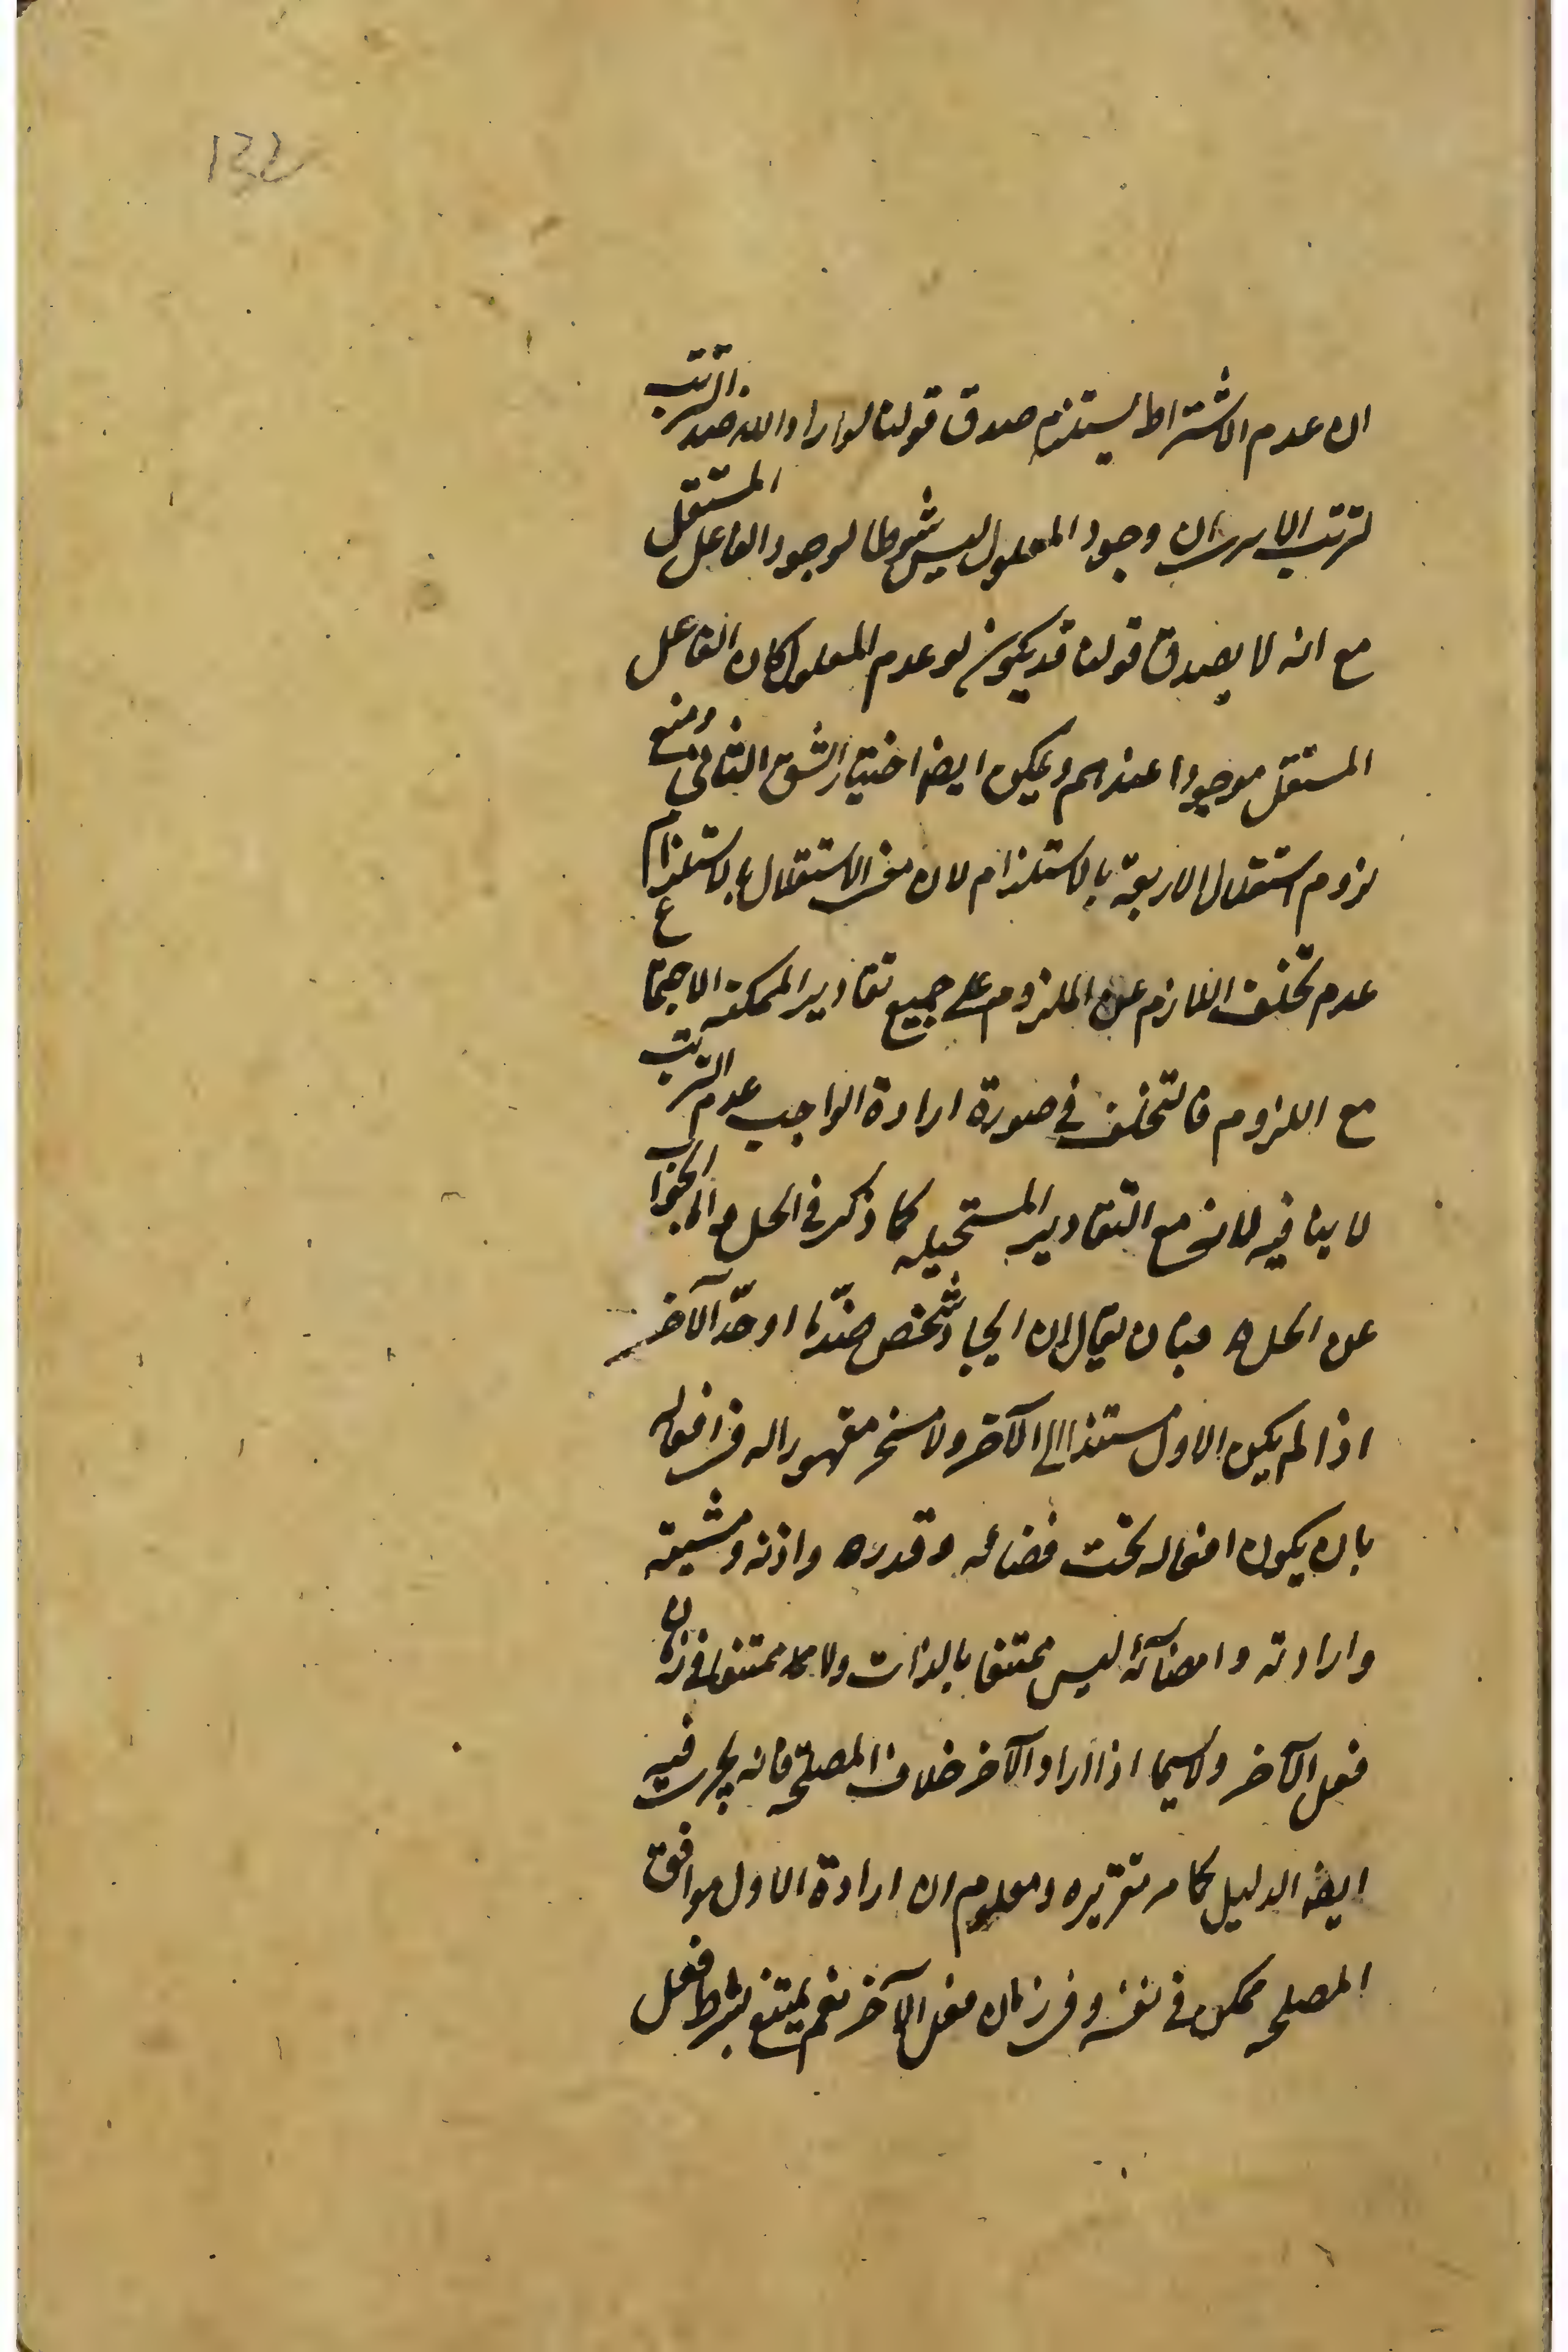 132
ان عدم الاشتراط يستلزم صدق قولنا لو اراد الله ضد الترتب
لترتب الا يرى ان وجود المعلول ليس شرطا لوجود الفاعل المستقل
مع انه لا يصدق قولنا قد يكون لو عدم المعلول كان الفاعل
المستقل موجودا عندهم ويمكن ايضا اختيار الشق الثانى ومنع
لزوم استقلال الاربعة بالاستلزام لان معنى الاستقلال بالاستلزام
عدم تخلف اللازم عن الملزوم على جميع تقادير الممكنه الاجتماع
مع اللزوم فالتخلف في صورة ارادة الواجب عدم الترتب
لا ينافيه لانه مع التقادير المستحيله كما ذكر في الحل و الجواب
عن الحل فبان يقال ان ايجاد شخص ضد ما اوجده الآخر
اذا لم يكن الاول مستندا الى الآخر ولا مسخر مقهورا له في افعاله
بان يكون افعاله تحت قضائه وقدره واذنه ومشيته
وارادته وامضائه ليس ممتنعا بالذات ولا ممتنعا في زمان
فعل الآخر ولاسيما اذا اراد الآخر خلاف المصلحه فانه يجرى فيه
ايضا الدليل كما مر تقريره ومعلوم ان ارادة الاول موافق
المصلحه ممكن في نفسه وفي زمان فعل الآخر نعم يمتنع بشرط فعل